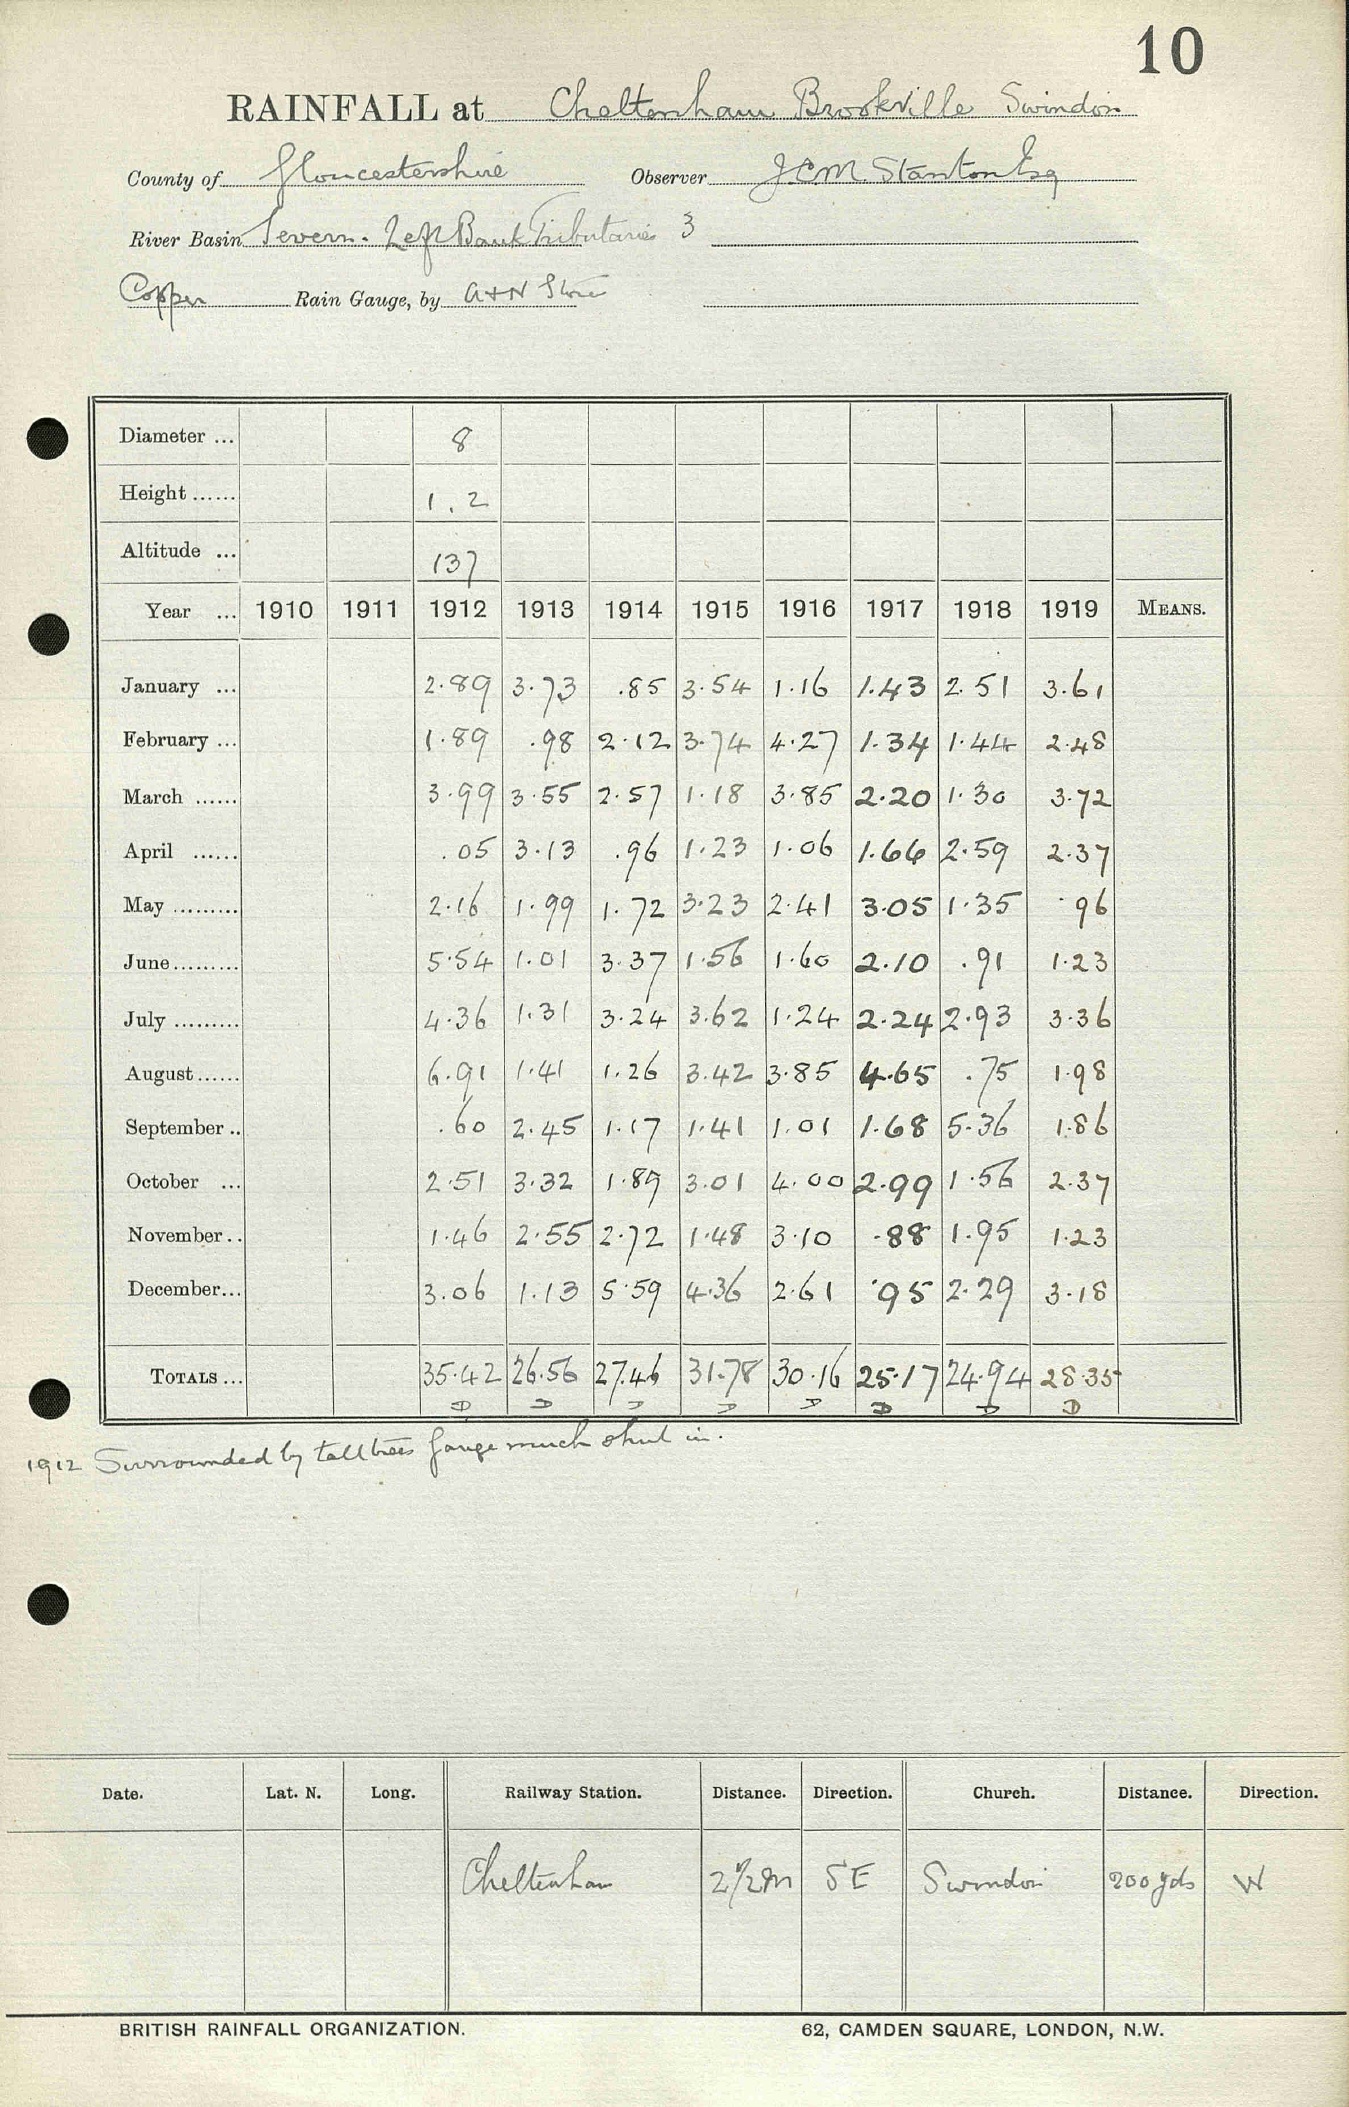 10
RAINFALL at Cheltenham Brookville Swindon
County of Gloucestershire Observer J.C.M. Stanton Esq
River Basin Severn. Left Bank Tributaries 3
Copper Rain Gauge, by A+N Store
Diameter ... 8
Height ...... 1.2
Altitude ... 137
Year ... 1910 1911 1912 1913 1914 1915 1916 1917 1918 1919 MEANS.
January ... 2.89 3.73 .85 3.54 1.16 1.43 2.51 3.61
February ... 1.89 .98 2.12 3.74 4.27 1.34 1.44 2.48
March ...... 3.99 3.55 2.57 1.18 3.85 2.20 1.30 3.72
April ...... .05 3.13 .96 1.23 1.06 1.66 2.59 2.37
May ......... 2.16 1.99 1.72 3.23 2.41 3.05 1.35 .96
June ......... 5.54 1.01 3.37 1.56 1.60 2.10 .91 1.23
July ......... 4.36 1.31 3.24 3.62 1.24 2.24 2.93 3.36
August ...... 6.91 1.41 1.26 3.42 3.85 4.65 .75 1.98
September .. .60 2.45 1.17 1.41 1.01 1.68 5.36 1.86
October ... 2.51 3.32 1.89 3.01 4.00 2.99 1.56 2.37
November .. 1.46 2.55 2.72 1.48 3.10 .88 1.95 1.23
December ... 3.06 1.13 5.59 4.36 2.61 .95 2.29 3.18
TOTALS ... 35.42 26.56 27.46 31.78 30.16 25.17 24.94 28.35
D D D D D D D D
1912 Surrounded by tall trees gauge much shut in.
Date. Lat. N. Long. Railway Station. Distance. Direction. Church. Distance. Direction.
Cheltenham 2 1/2 M SE Swindon 200 yds W
BRITISH RAINFALL ORGANIZATION. 62, CAMDEN SQUARE, LONDON, N.W.